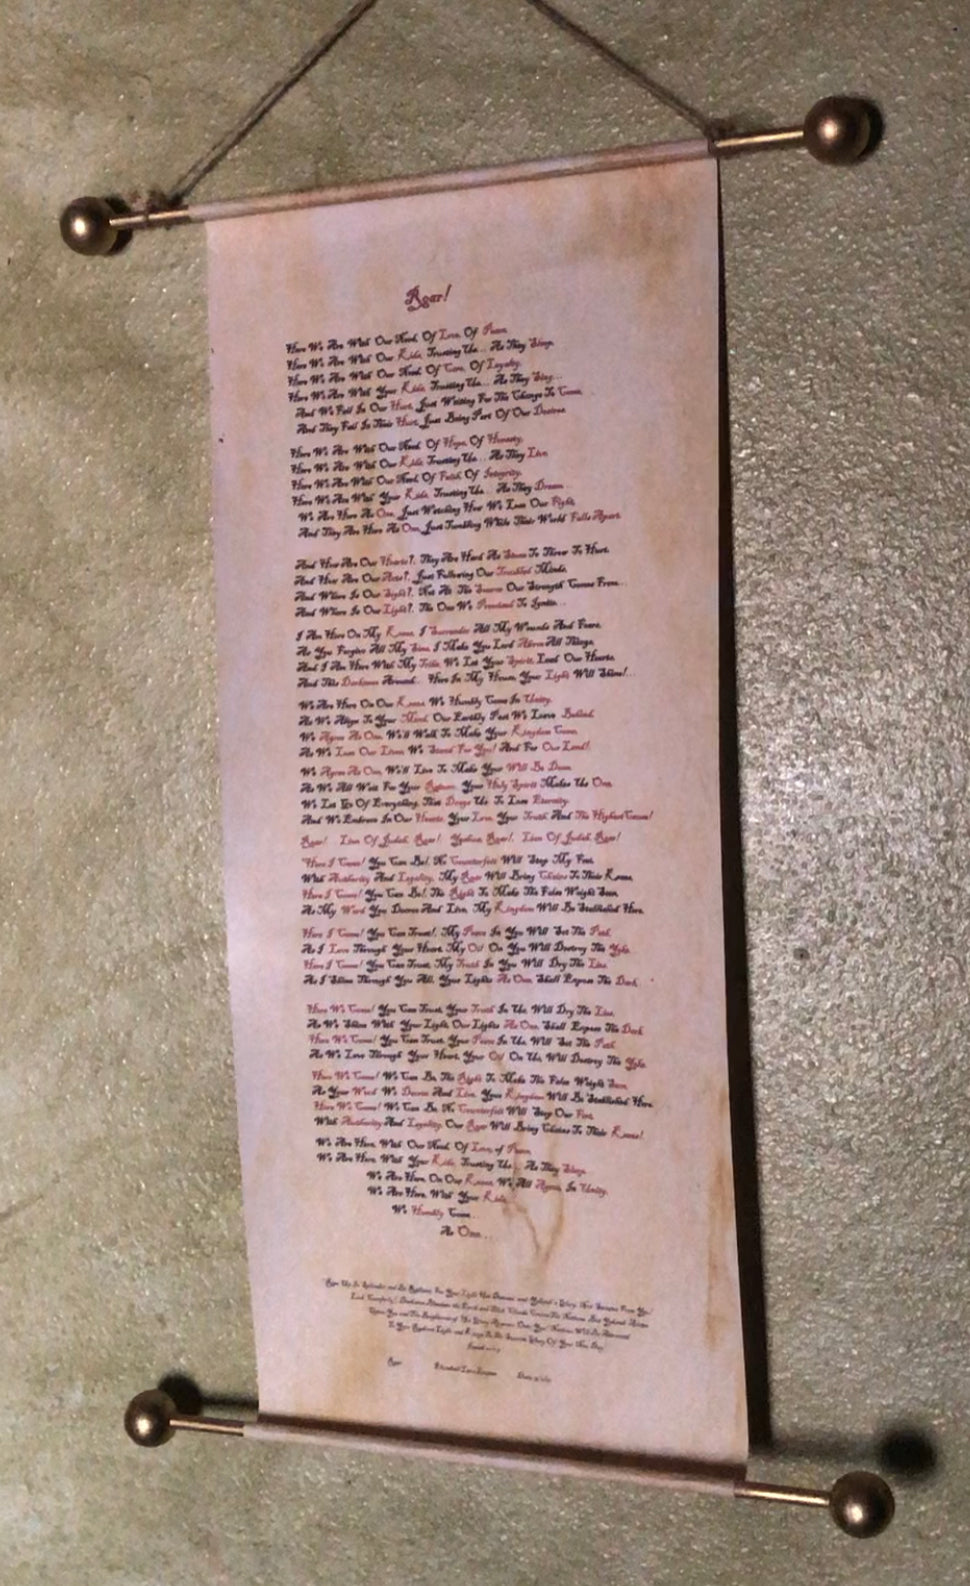 Roar!
Here We Are With Our Need Of Love, Of Peace,
Here We Are With Our Kids, Trusting Us... As They Sleep,
Here We Are With Our Need Of Care, Of Loyalty,
Here We Are With Your Kids, Trusting Us... As They Sing...
And We Fail In Our Hurt, Just Waiting For The Change To Come,
And They Fail In Their Hurt, Just Being Part Of Our Desires.
Here We Are With Our Need Of Hope, Of Honesty,
Here We Are With Our Kids Trusting Us... As They Live
Here We Are With Our Need Of Faith Of Integrity,
Here We Are With Your Kids, Trusting Us... As They Dream
We Are Here As One, Just Watching How We Lose Our Fight,
And They Are Here As One, Just Tumbling While Their World Falls Apart.
And How Are Our Hearts?, They Are Hard As Stones To Throw To Hurt,
And How Are Our Acts?, Just Following Our Troubled Minds,
And Where Is Our Sight?, Not At The Source Our Strength Comes From...
And Where Is Our Light?, The One We Promised To Ignite...
I Am Here On My Knees, I Surrender All My Wounds And Fears,
As You Forgive All My Sins, I Make You Lord Above All Things,
And I Am Here With My Tribe, We Let Your Spirit, Lead Our Hearts,
And This Darkness Around... Here In My House, Your Light Will Shine!...
We Are Here On Our Knees, We Humbly Come In Unity,
As We Align To Your Mind, Our Earthly Past We Leave Behind,
We Agree As One, We'll Walk To Make Your Kingdom Come,
As We Lose Our Lives, We Stand For You! And For Our Land!,
We Agree As One, We'll Live To Make Your Will Be Done,
As We All Wait For Your Return, Your Holy Spirit Makes Us One,
We Let Go Of Everything, That Drags Us To Lose Eternity,
And We Embrace In Our Hearts, Your Love, Your Truth And The Highest Cause!
Roar! Lion Of Judah, Roar! Yeshua, Roar!, Lion Of Judah, Roar!
"Here I Come! You Can Be!, No Counterfeit Will Stop My Feet,
With Authority And Legality, My Roar Will Bring Chains To Their Knees,
Here I Come! You Can Be!, The Right To Make The False Weight Seen,
As My Word You Decree And Live, My Kingdom Will Be Stablished Here,
Here I Come! You Can Trust!, My Peace In You Will Set The Path,
As I Love Through Your Heart, My Oil On You Will Destroy The Yoke,
Here I Come! You Can Trust, My Truth In You Will Dry The Lies,
As I Shine Through You All, Your Lights As One, Shall Expose The Dark.
Here We Come! You Can Trust, Your Truth In Us, Will Dry The Lies,
As We Shine With Your Light, Our Lights As One, Shall Expose The Dark
Here We Come! You Can Trust, Your Peace In Us, Will Set The Path,
As We Love Through Your Heart, Your Oil On Us, Will Destroy The Yoke,
Here We Come! We Can Be, The Right To Make The False Weight Seen,
As Your Word We Decree And Live, Your Kingdom Will Be Stablished Here,
Here We Come! We Can Be, No Counterfeit Will Stop Our Feet,
With Authority And Legality, Our Roar Will Bring Chains To Their Knees!
We Are Here, With Our Need Of Love, of Peace,
We Are Here, With Your Kids, Trusting Us... As They Sleep,
We Are Here, On Our Knees, We All Agree, In Unity,
We Are Here, With Your Kids,
We Humbly Come...
As One...